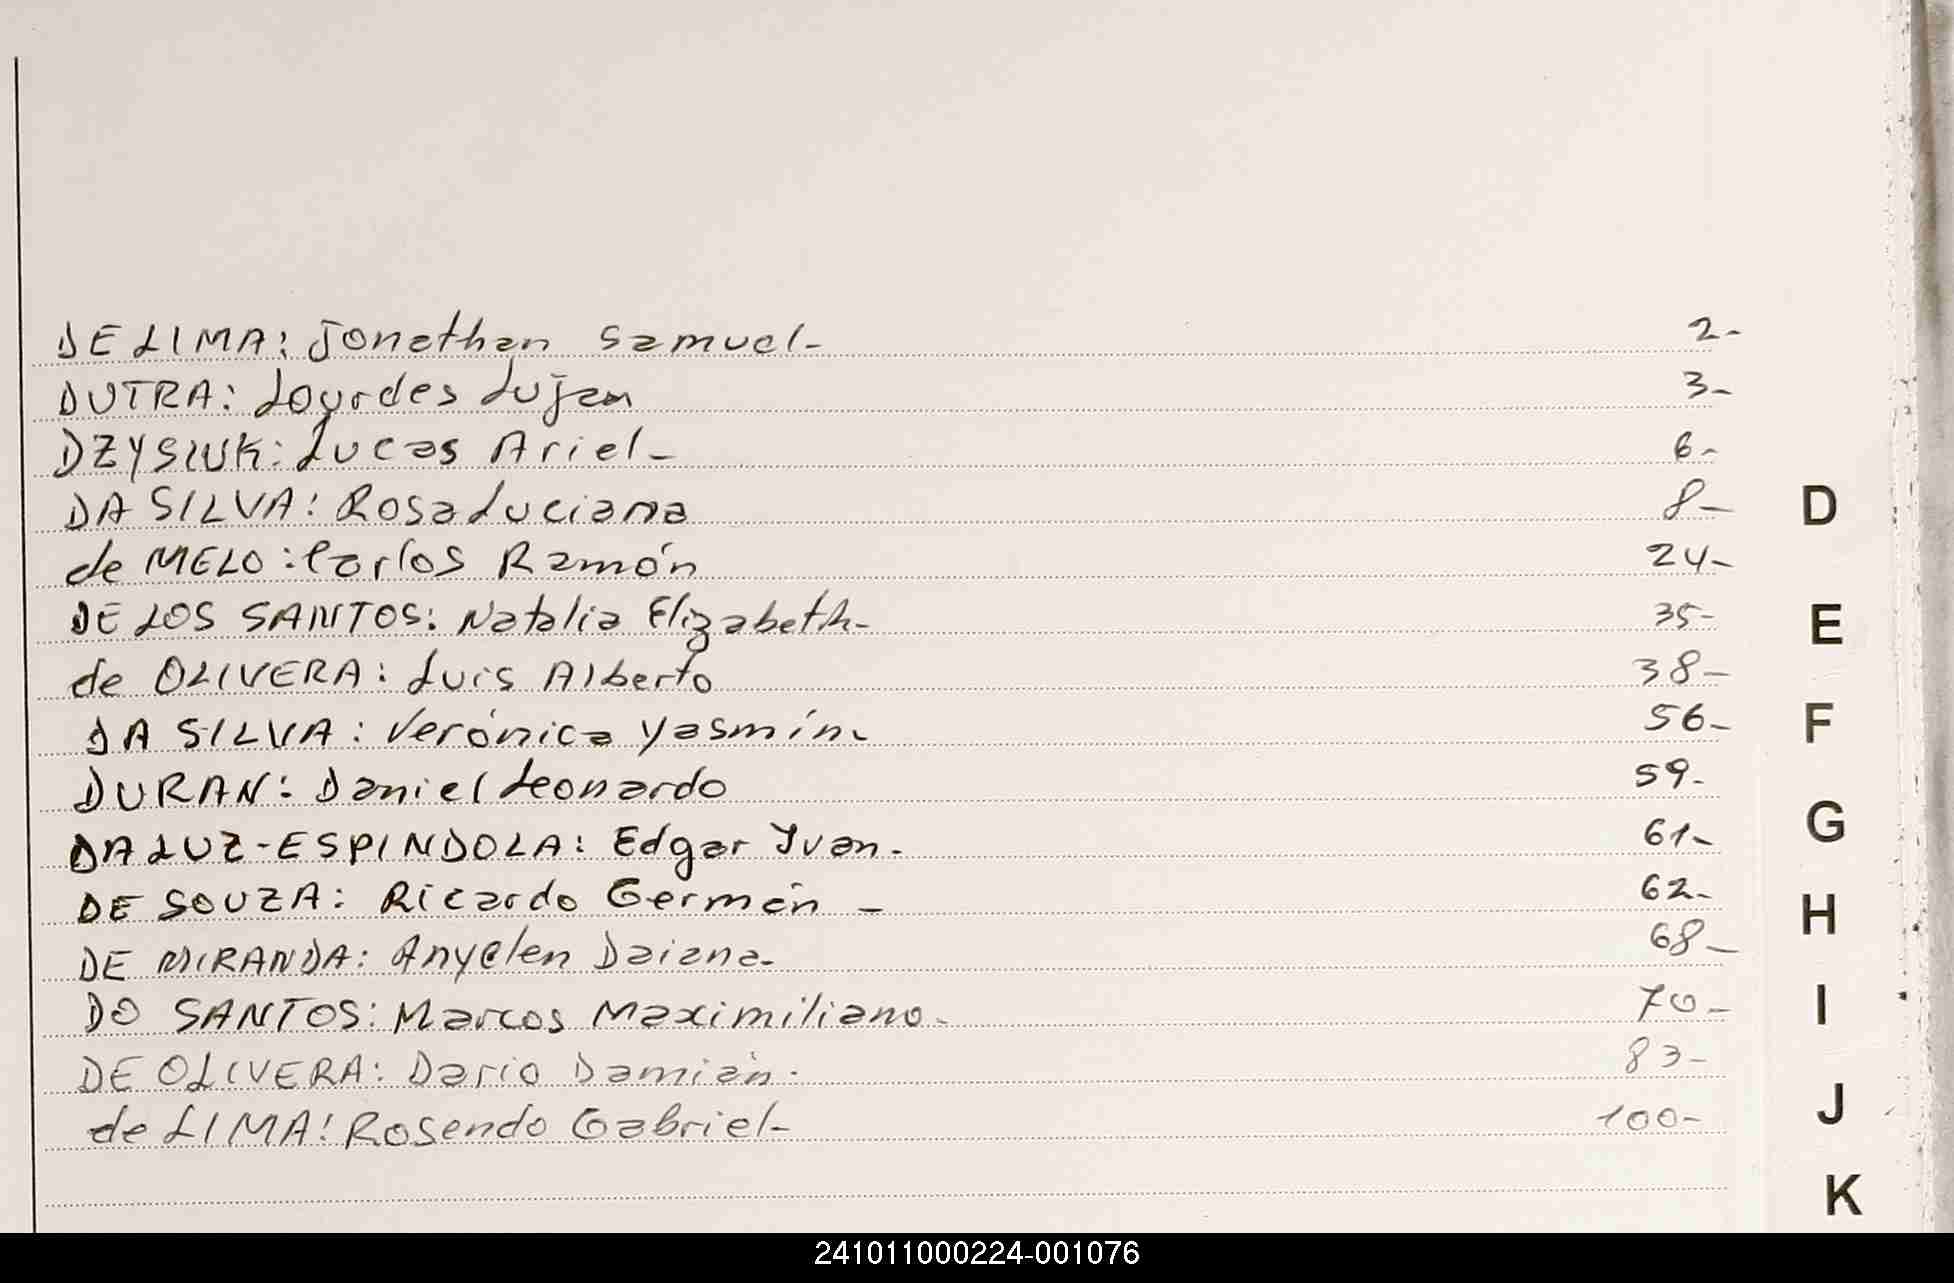 DE LIMA: Jonathan Samuel- 2-
DUTRA: Lourdes Lujan 3-
DZYSIUK: Lucas Ariel- 6-
DA SILVA: Rosa Luciana 8-
de MELO: Carlos Ramón 24-
DE LOS SANTOS: Natalia Elizabeth- 35-
de OLIVERA: Luis Alberto 38-
DA SILVA: Verónica Yasmín- 56-
DURAN: Daniel Leonardo 59-
DA LUZ-ESPINDOLA: Edgar Ivan- 61-
DE SOUZA: Ricardo Germán - 62-
DE MIRANDA: Anyelen Daiana- 68-
DO SANTOS: Marcos Maximiliano- 70-
DE OLIVERA: Dario Damián- 83-
de LIMA: Rosendo Gabriel- 100-
D
E
F
G
H
I
J
K
241011000224-001076